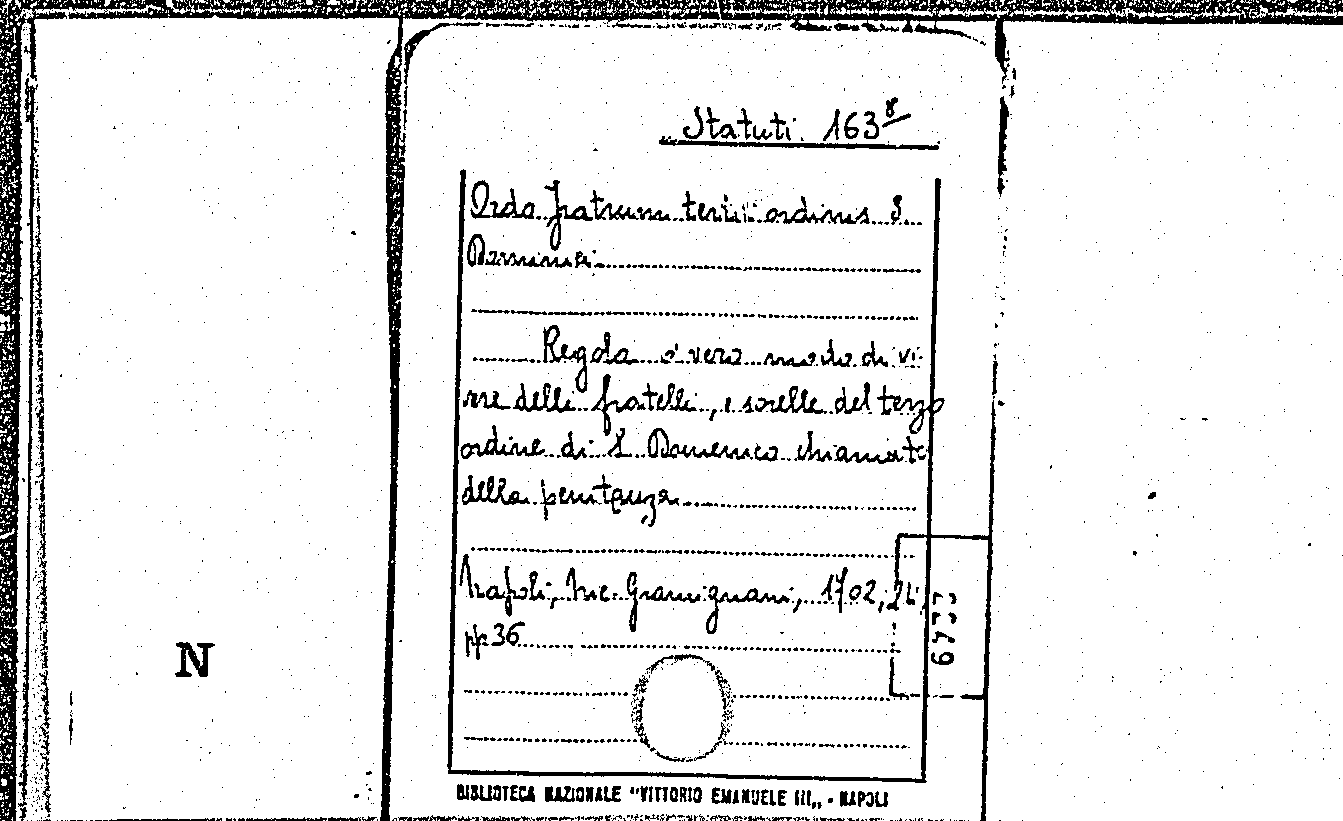 Statuti 163⁸
Ordo fratrum tertii ordinis S.
Dominici
Regola o' vero modo di vi-
vere delli fratelli, e sorelle del terzo
ordine di S. Domenico chiamato
della penitenza
Napoli, Nic. Gramignani, 1702, 24,
pp. 36
N
BIBLIOTECA NAZIONALE "VITTORIO EMANUELE III„ - NAPOLI